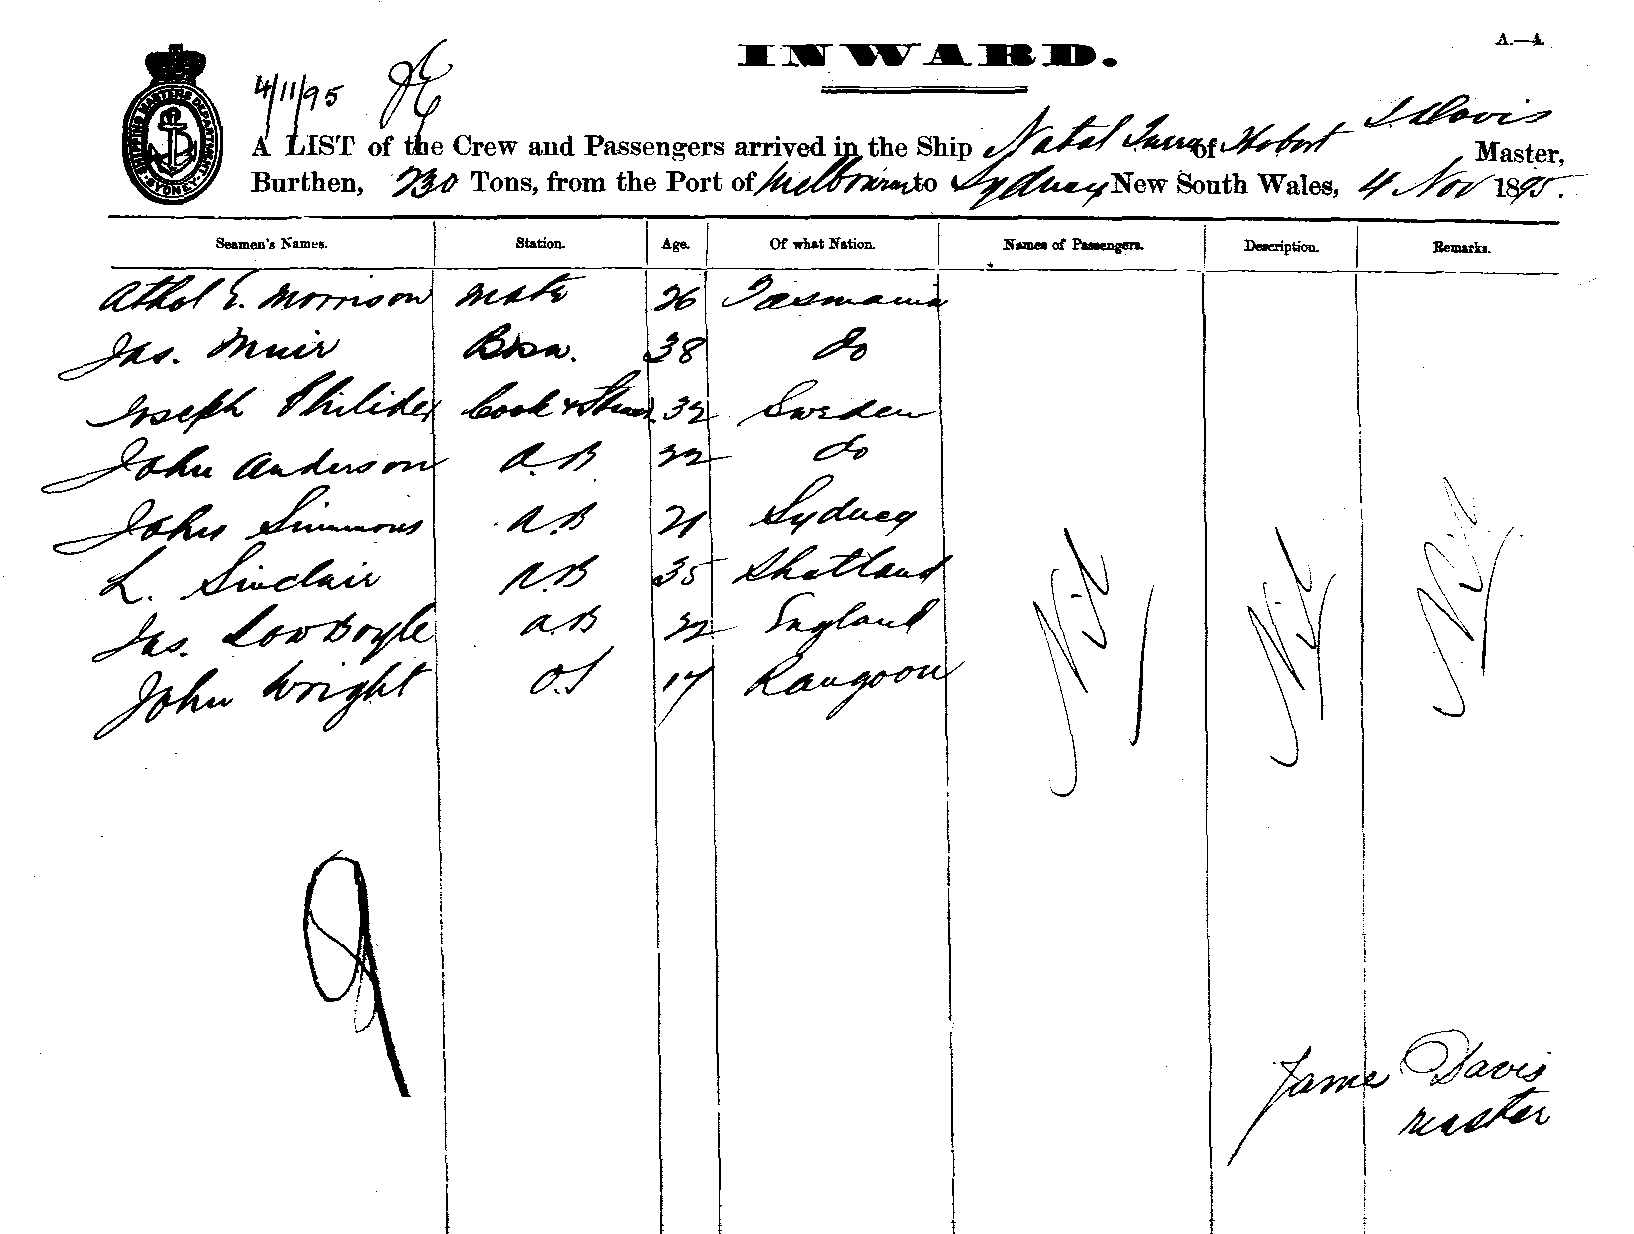 INWARD.
A.—4.
4/11/95
SHIPPING MASTERS DEPARTMENT SYDNEY
J. Davis
A LIST of the Crew and Passengers arrived in the Ship Natal Queen of Hobart Master,
Burthen, 230 Tons, from the Port of Melbourne to Sydney New South Wales, 4 Nov 1895.
Seamen's Names. Station. Age. Of what Nation. Names of Passengers. Description. Remarks.
Athol E. Morrison Mate 26 Tasmania
Jas. Muir Bosn. 38 do
Joseph Cook & Stewd. 32 Sweden
John Anderson A.B 22 do
John Simmons A.B 21 Sydney
L. Sinclair A.B 35 Shetland
Jas. A.B 22 England
John Wright O.S 17 Rangoon
Nil Nil Nil
James Davis
master